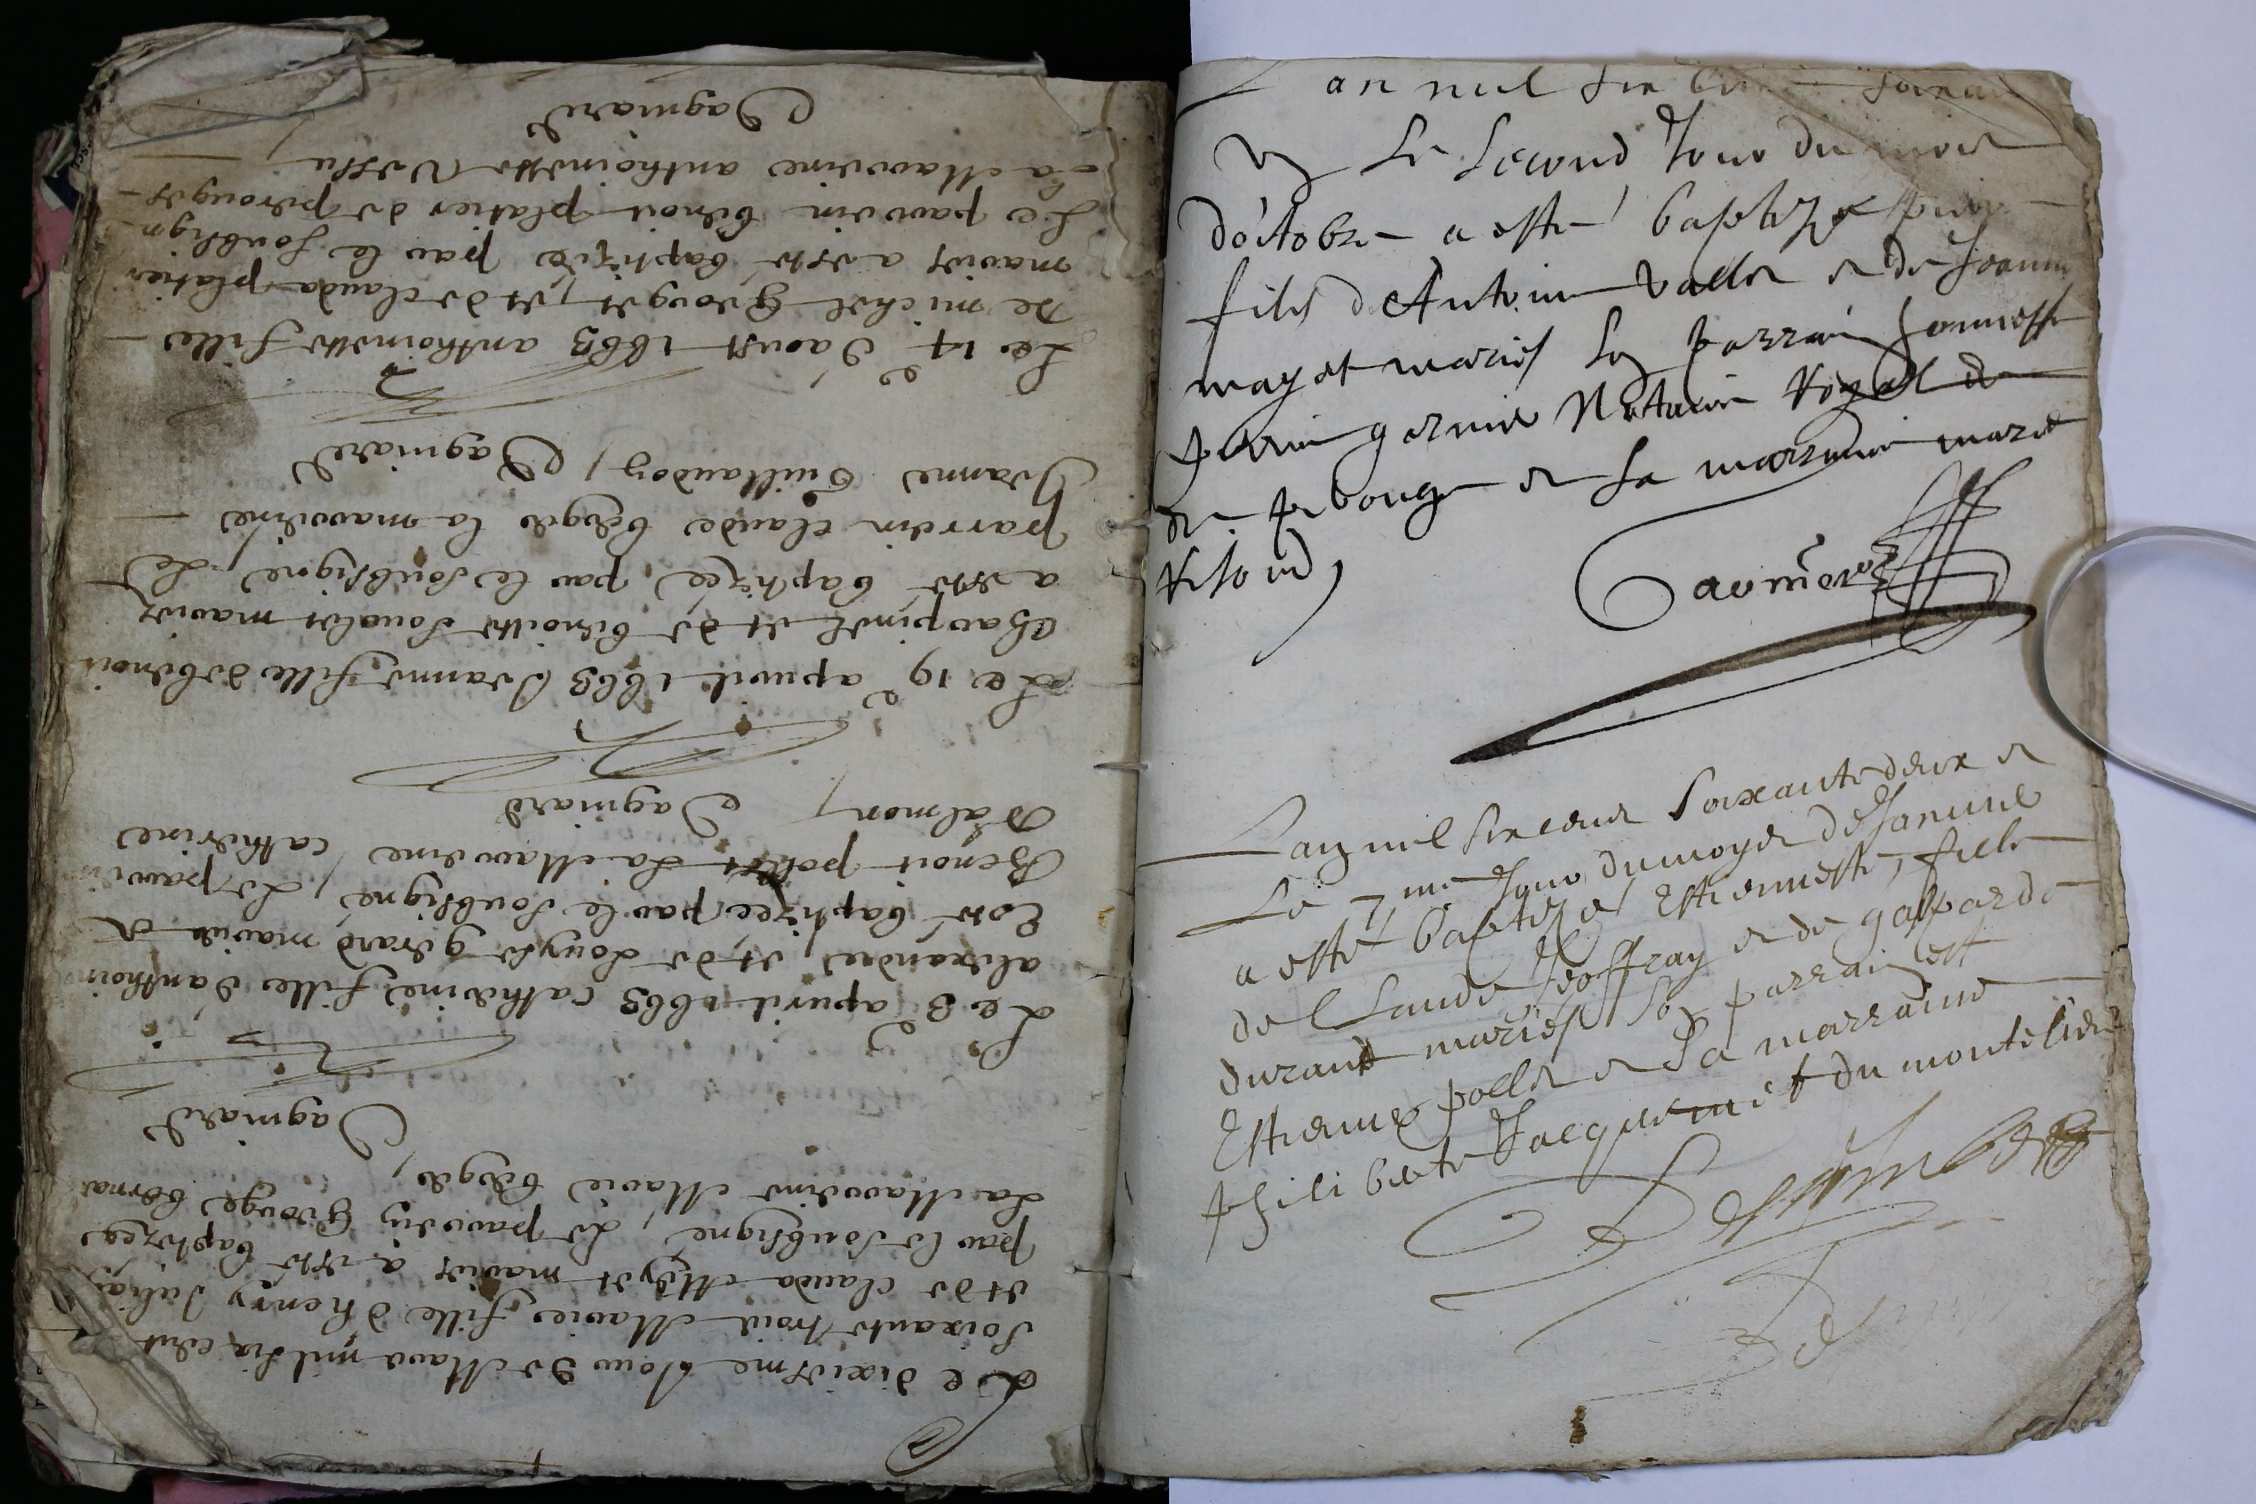 Le dixiesme Jour de Mars mil six cent
soixante trois Marie fille d'henry Julia
et de clauda Meyet mariez a esté baptizee
par le soubsigné, Le parrin george berna
La Marrine Marie bergé,
Dagniard
Le 3e apuril 1663 catherine fille d'anthoin
alixandre, et de Louyse gerard mariés A
Esté baptizee par le soubsigné, Le parrin
Benoit pollet La Marrine, catherine
Dalmon, Dagniard
Le 19e apuril 1663 Jeanne fille de benoit
Charpinel et de benoitte Soualet mariez
a esté baptizee par le soubsigné, Le
parrein claude bergé la marrine
Jeanne Guillaudon, Dagniard
Le 14e d'aoust 1663 anthoinette fille
de michel george, et de clauda platier
mariez a esté baptizée par le soubsign
Le parrin benoit platier de perouges
La Marrine anthoinette
Dagniard
an mil six
Le second Jour du mois
d'octobre a esté baptizé
fils d'Antoine Vallet et de Jeanne
mayet mariés so parrain
perrin garnier Nottaire Royal de
de perouge et sa marraine marie

L'an mil six cens soixante deux et
Le 7me Jour du moys de Janvier
a esté baptizée Estiennette, fille
de Claude Jeoffray et de gasparde
durand mariés son parrain est
Estienne pollet et sa marraine
philiberte Jacquemet du montelier